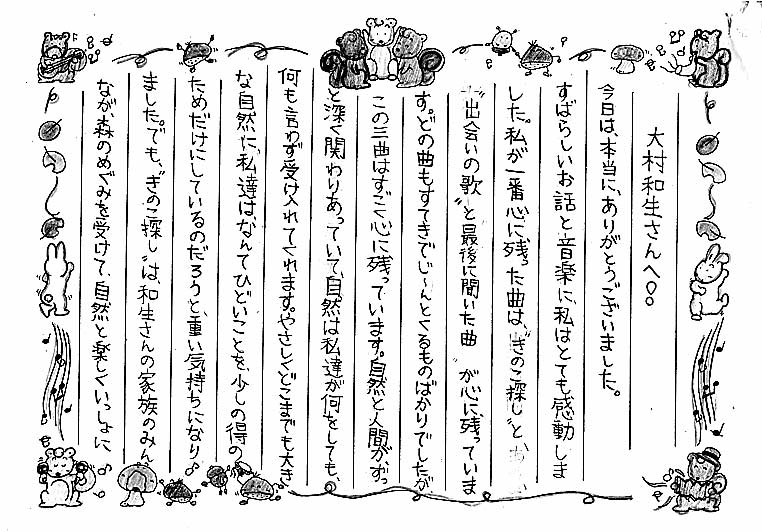 大村和生さんへ!○
今日は、本当に、ありがとうございました。
すばらしいお話と音楽に、私はとても感動しま
した。私が一番心に残った曲は、〝きのこ探し〟と、
〝出会いの歌〟と最後に聞いた曲 が心に残っていま
す。どの曲もすてきでじ〜んとくるものばかりでしたが
この三曲はすごく心に残っています。自然と人間がずっ
と深く関わりあっていて、自然は私達が何をしても、
何も言わず受け入れてくれます。やさしくどこまでも大き
な自然に、私達は、なんてひどいことを、少しの得の
ためだけにしているのだろうと、重い気持ちになり
ました。でも、〝きのこ探し〟は、和生さんの家族のみん
なが、森のめぐみを受けて、自然と楽しくいっしょに